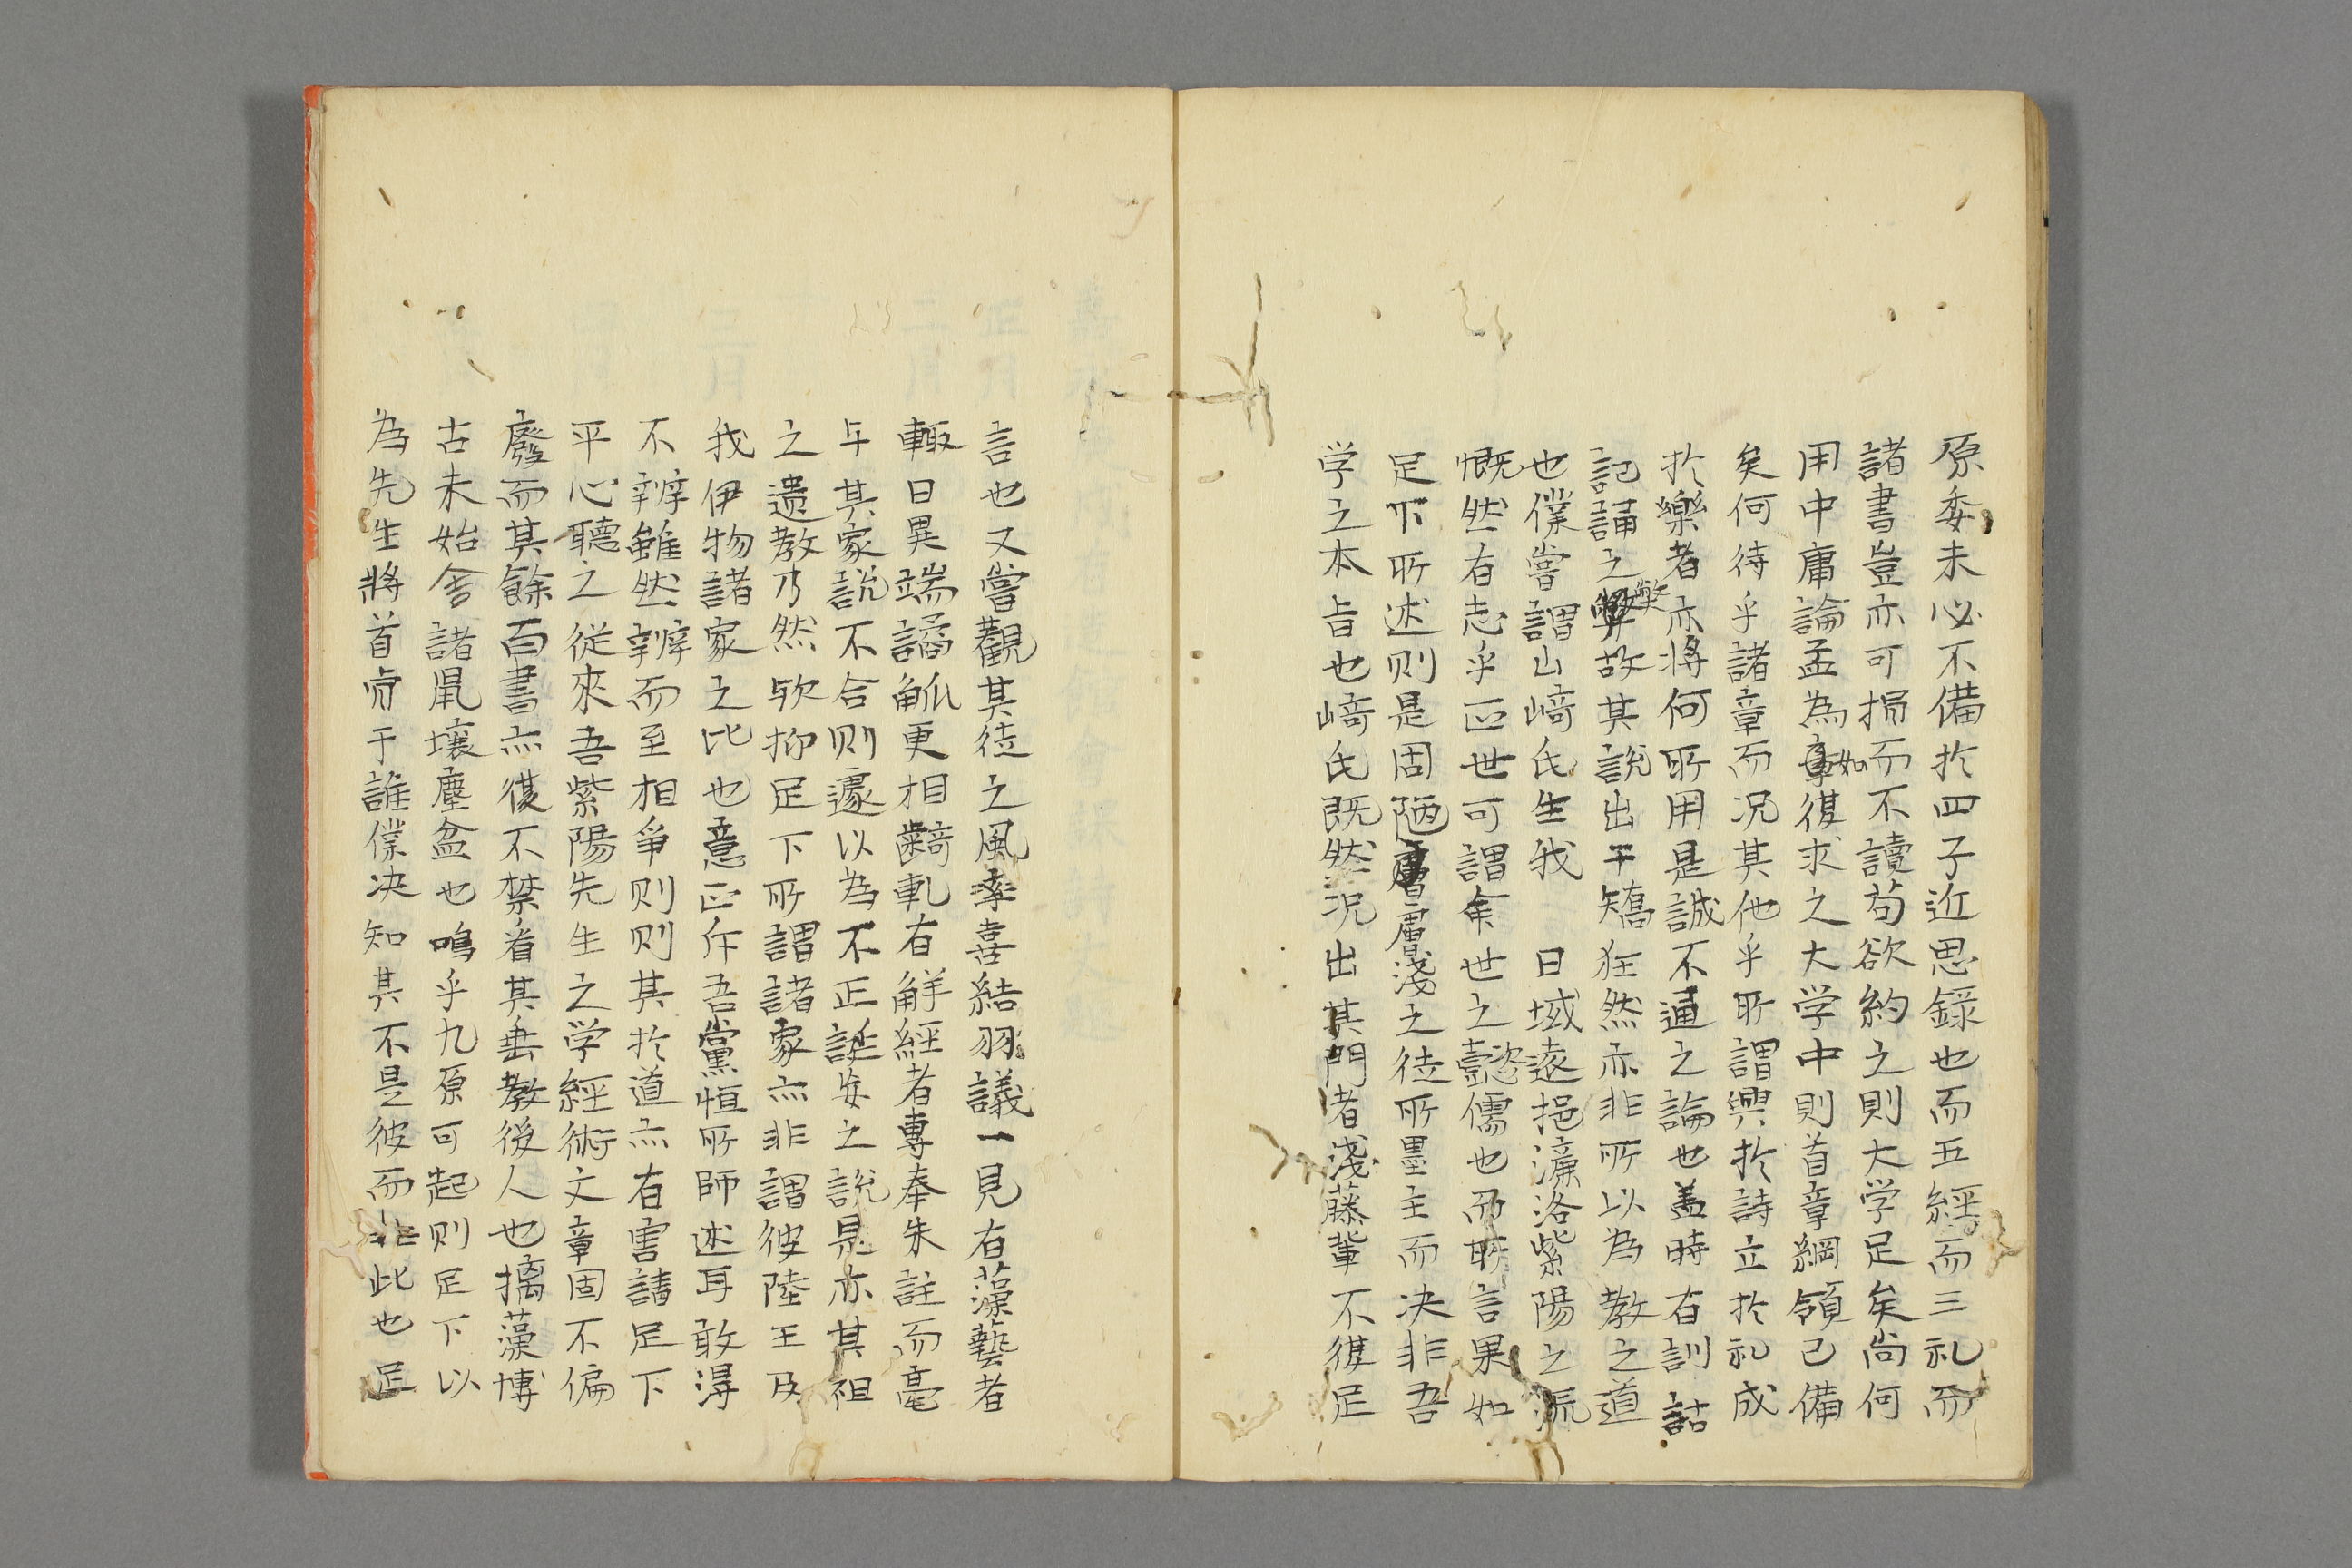 原委未必不備於四子近思録也而五經而三礼而
諸書豈亦可捐而不讀苟欲約之則大学足矣尚何
用中庸論孟為如復求之大学中則首章綱領已備
矣何待乎諸章而况其他乎所謂興於詩立於礼成
於樂者亦將何所用是誠不通之論也盖時有訓詁
記誦之弊故其說出于矯狂然亦非所以為教之道
也僕嘗謂山﨑氏生我 日域遠挹濂洛紫陽之流
慨然有志乎匹世可謂命世之懿儒也而眹言果如
足下所述则是固陋膚淺之徒所墨主而决非吾
学之本旨也﨑氏既然况出其門者淺藤輩不復足
言也又嘗觀其徒之風率喜結羽議一見有藻藝者
輙曰異端譎觚更相齮軋有觧經者專奉朱註而毫
与其家說不合则遽以為不正詃妄之說是亦其祖
之遺教乃然欤抑足下所謂諸家亦非謂彼陸王及
我伊物諸家之比也意匹斥吾黨恒所師述耳敢淂
不辨雖然辨而至相爭则则其於道亦有害請足下
平心聽之従來吾紫陽先生之学經術文章固不偏
廢而其餘百書亦復不禁着其垂教後人也摛藻博
古未始舍諸凮壤塵盆也嗚乎九原可起则足下以
為先生將首肯于誰僕决知其不是彼而非此也足